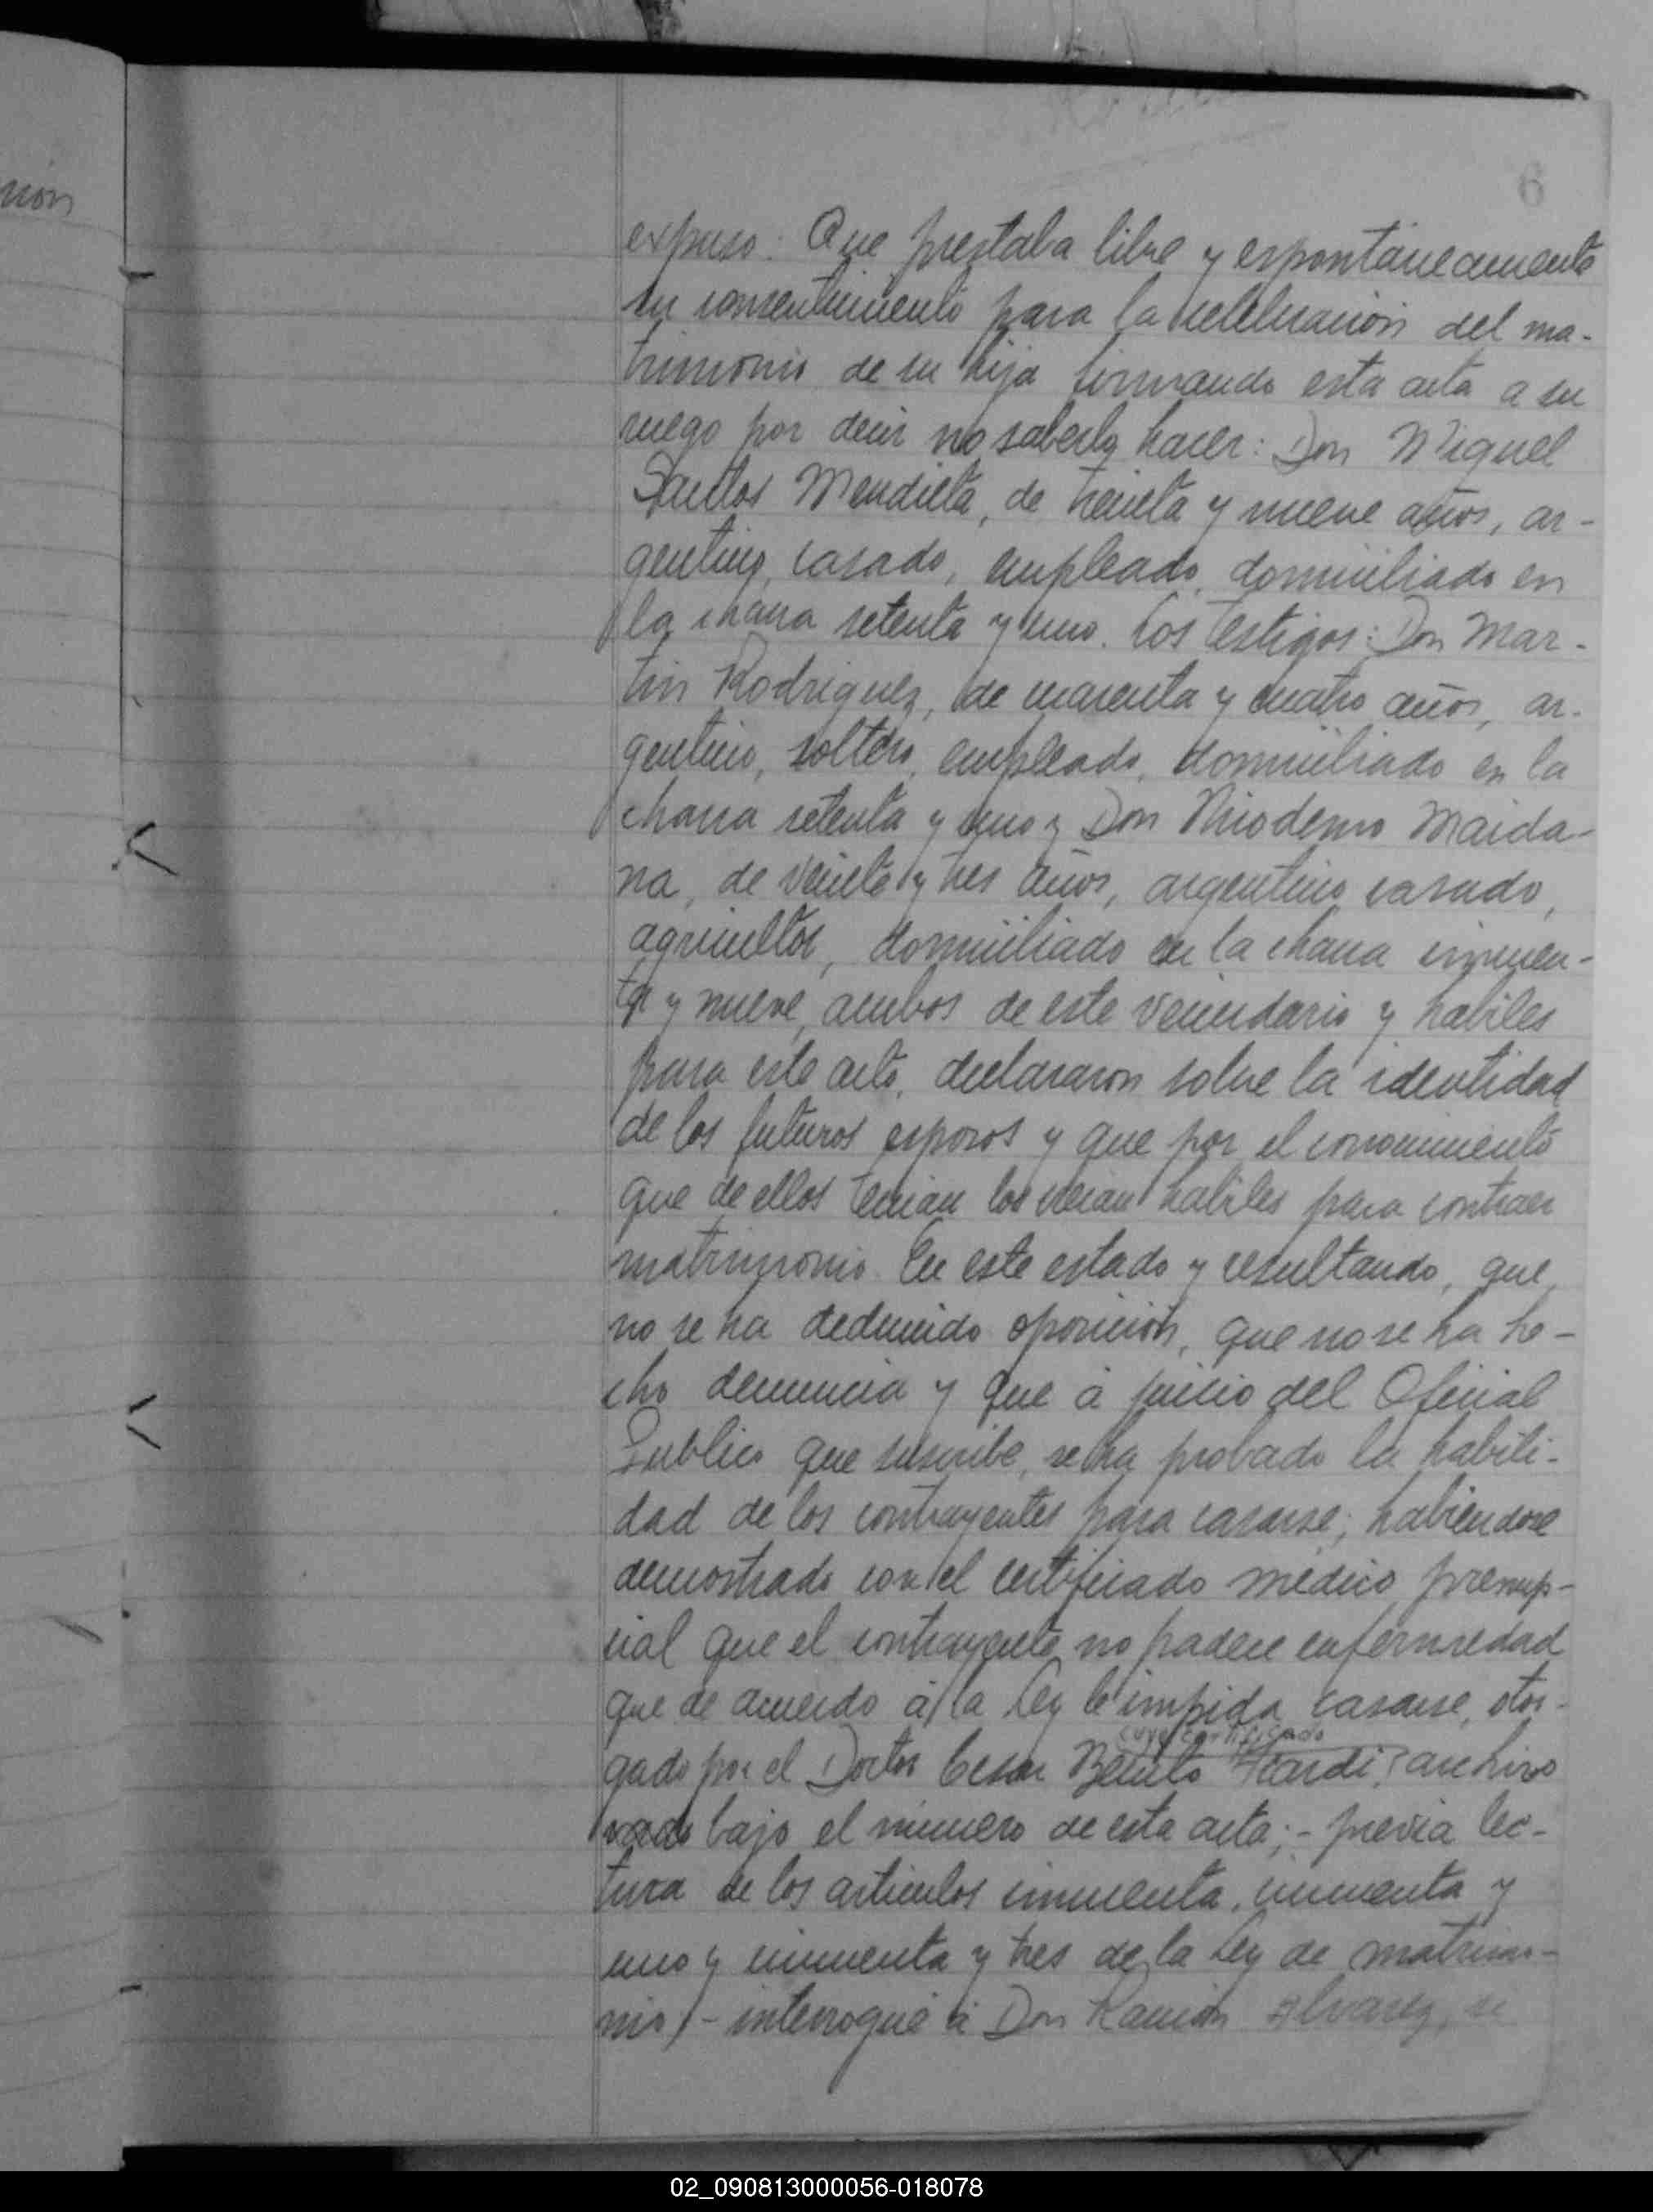 6
expuso: Que prestaba libre y espontáneamente
su consentimiento para la celebración del ma-
trimonio de su hija firmando esta acta a su
ruego por decir no saberlo hacer: Don Miguel
Santos Mendieta, de treinta y nueve años, ar-
gentino, casado, empleado, domiciliado en
la chacra setenta y uno. Los testigos: Don Mar-
tin Rodriguez, de cuarenta y cuatro años, ar-
gentino, soltero, empleado, domiciliado en la
chacra setenta y uno y Don Nicodemo Maida-
na, de veinte y tres años, argentino casado,
agricultor, domiciliado en la chacra cincuen-
ta y nueve, ambos de este vecindario y habiles
para este acto, declararon sobre la identidad
de los futuros esposos y que por el conocimiento
que de ellos tenian los creian habiles para contraer
matrimonio. En este estado y resultando, que
no se ha deducido oposición, que no se ha he-
cho denuncia y que á juicio del Oficial
Publico que suscribe, se ha probado la habili-
dad de los contrayentes para casarse; habiendose
demostrado con el certificado médico prenup-
cial que el contrayente no padece enfermedad
que de acuerdo á la Ley le impida casarse, otor-
cuyo certificado
gado por el Doctor Cesar Benito archivo
bajo el número de esta acta;- previa lec-
tura de los articulos cincuenta, cincuenta y
uno y cincuenta y tres de la Ley de matrimo-
nio,- interrogué á Don Ramón Alvarez, si
non
02_090813000056-018078